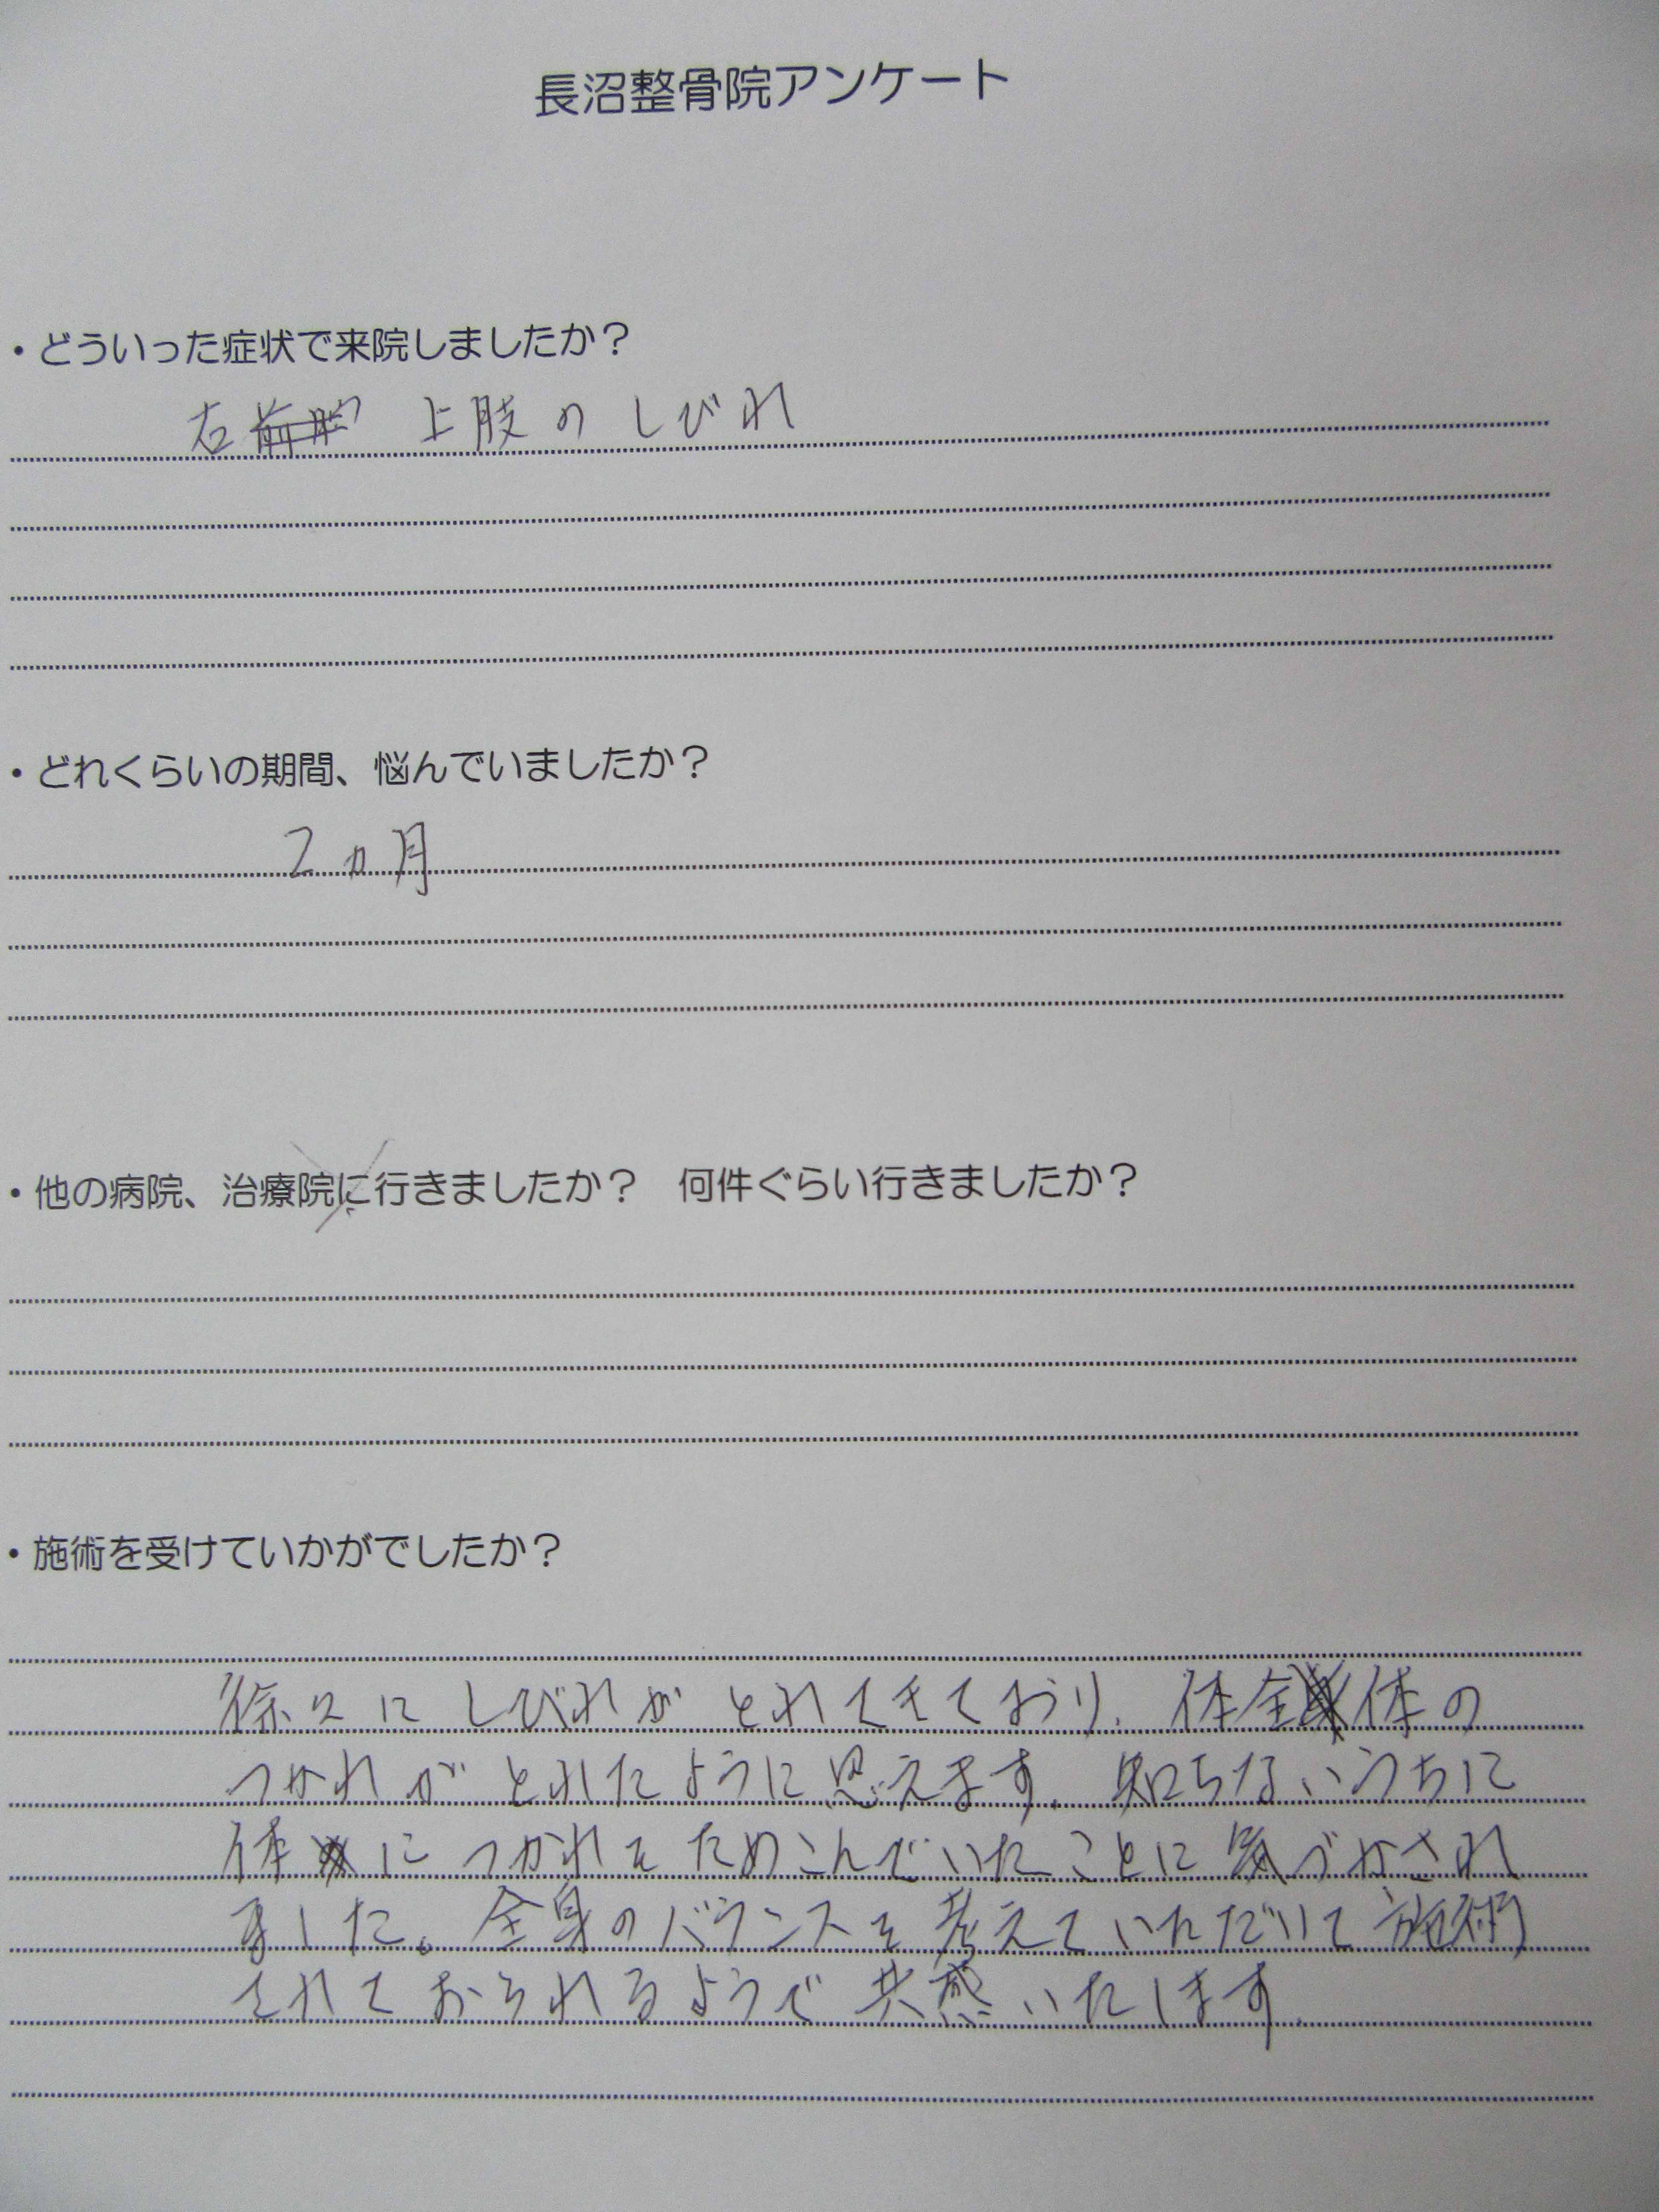 長沼整骨院アンケート
・どういった症状で来院しましたか？
右 上肢のしびれ
・どれくらいの期間、悩んでいましたか？
2ヵ月
・他の病院、治療院に行きましたか？ 何件ぐらい行きましたか？
・施術を受けていかがでしたか？
徐々にしびれがとれてきており、体全体の
つかれがとれたように思えます。知らないうちに
体につかれをためこんでいたことに気づかされ
ました。全身のバランスを考えていただいて施術
されておられるようで共感いたします。